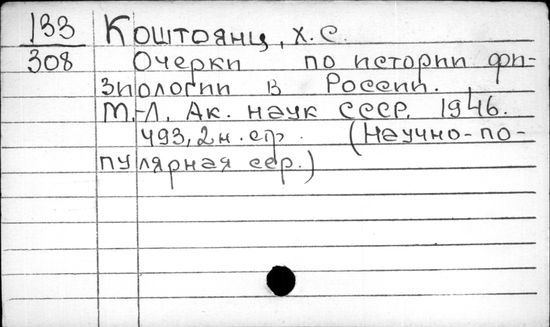 133 Коштоянц, Х.С.
308 Очерки по истории фи-
зиологии в России.
М.-Л. Ак. наук СССР. 1946.
493, 2 н. стр. (Научно-по-
пулярная сер.)